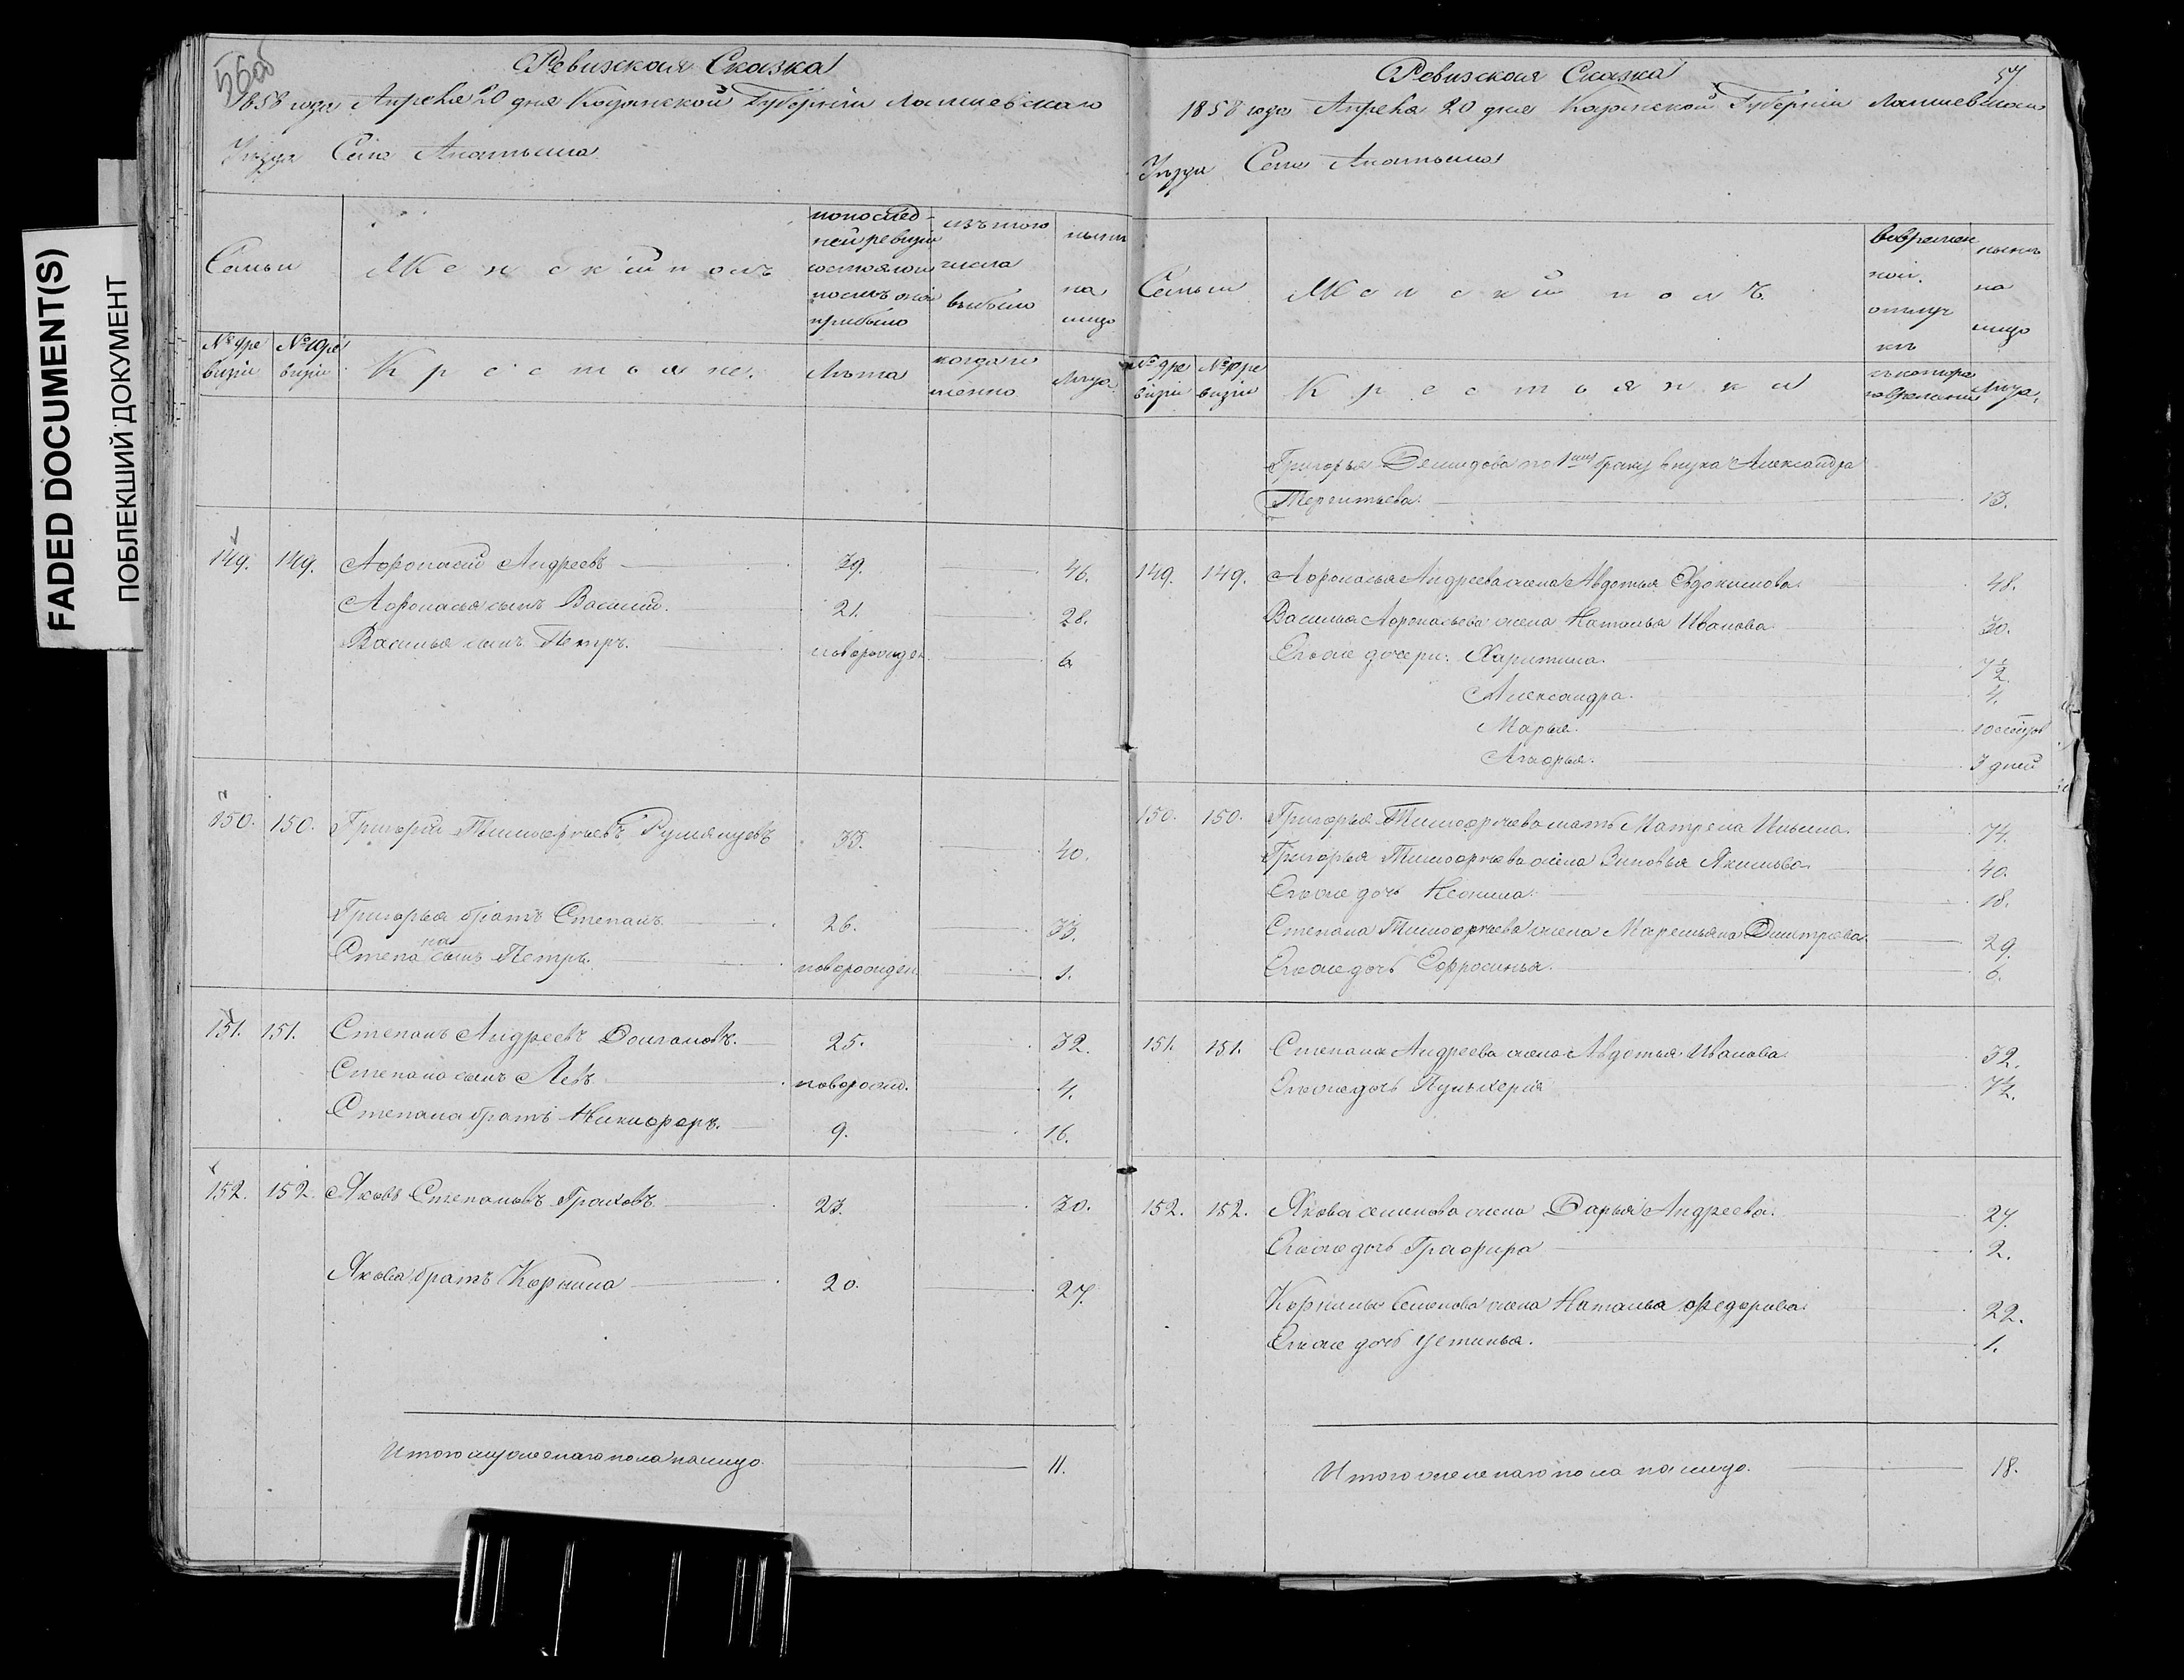 FADED DOCUMENT(S)
ПОБЛЕКШИЙ ДОКУМЕНТ
56об
Ревизская Сказка
1858 года Апреля 20 дня Казанской Губерніи Лаишевскаго
Уѣзда Села Анатыша
Семьи
Женскій полъ
по послед-
ней ревизіи
состояло и
послѣ оной
прибыло
изъ того
числа
выбыло
нынѣ
на
лицо
№ 9 ре
визіи
№ 10 ре
визіи
Крестьяне.
Лѣта
когда и
менно
Лѣта
149. 149. Афонасій Андреевъ 39. 46.
Афонасья сынъ Василій. 21. 28.
Василья сынъ Петръ. новорожден. 6
150. 150. Григорій Тимофѣевъ Румянцевъ 33. 40.
Григорья братъ Степанъ. 26. 33.
Степана сынъ Петръ. новорожден 1.
151. 151. Степанъ Андреевъ Долгановъ. 25. 32.
Степана сынъ Левъ новорожд. 4.
Степана братъ Никифоръ. 9. 16.
152. 152. Яковъ Степановъ Граховъ 23. 30.
Якова братъ Корнила 20. 27.
Итого мужескаго пола налицо 11.
57
Ревизская Сказка
1858 года Апреля 20 дня Казанской Губерніи Лаишевскаго
Уѣзда Села Анатыша
Семьи
Женскій полъ.
во времен
ной
отлуч
кѣ
нынѣ
на
лицо
№ 9 ре
визіи
№ 10 ре
визіи
Крестьянки
съ котора
го времени
Лѣта.
Григорья Демидова по 1му браку внука Александра
Терентьева. 13.
149. 149. Афонасья Андреева жена Авдотья Евдокимова. 48.
Василья Афонасьева жена Наталья Иванова 30.
Ево же дочери: Харитина. 7½
Александра. 4.
Марья.
Агафья. 3 дней
150. 150. Григорья Тимофѣева мать Матрена Ильина. 74.
Григорья Тимофѣева жена Зиновья Якимова 40.
Ево же дочь Неонила. 18.
Степана Тимофѣева жена Маремьяна Дмитрева 29.
Ево же дочь Ефросинья. 6.
151. 151. Степана Андреева жена Авдотья Иванова 32.
Ево же дочь Пульхерія 7½.
152. 152. Якова семенова жена Дарья Андреева. 27.
Ево же дочь Графира 2.
Корнилы Семенова жена Наталья Федорова. 22.
Ево же дочь Устинья. 1.
Итого женскаго пола налицо. 18.